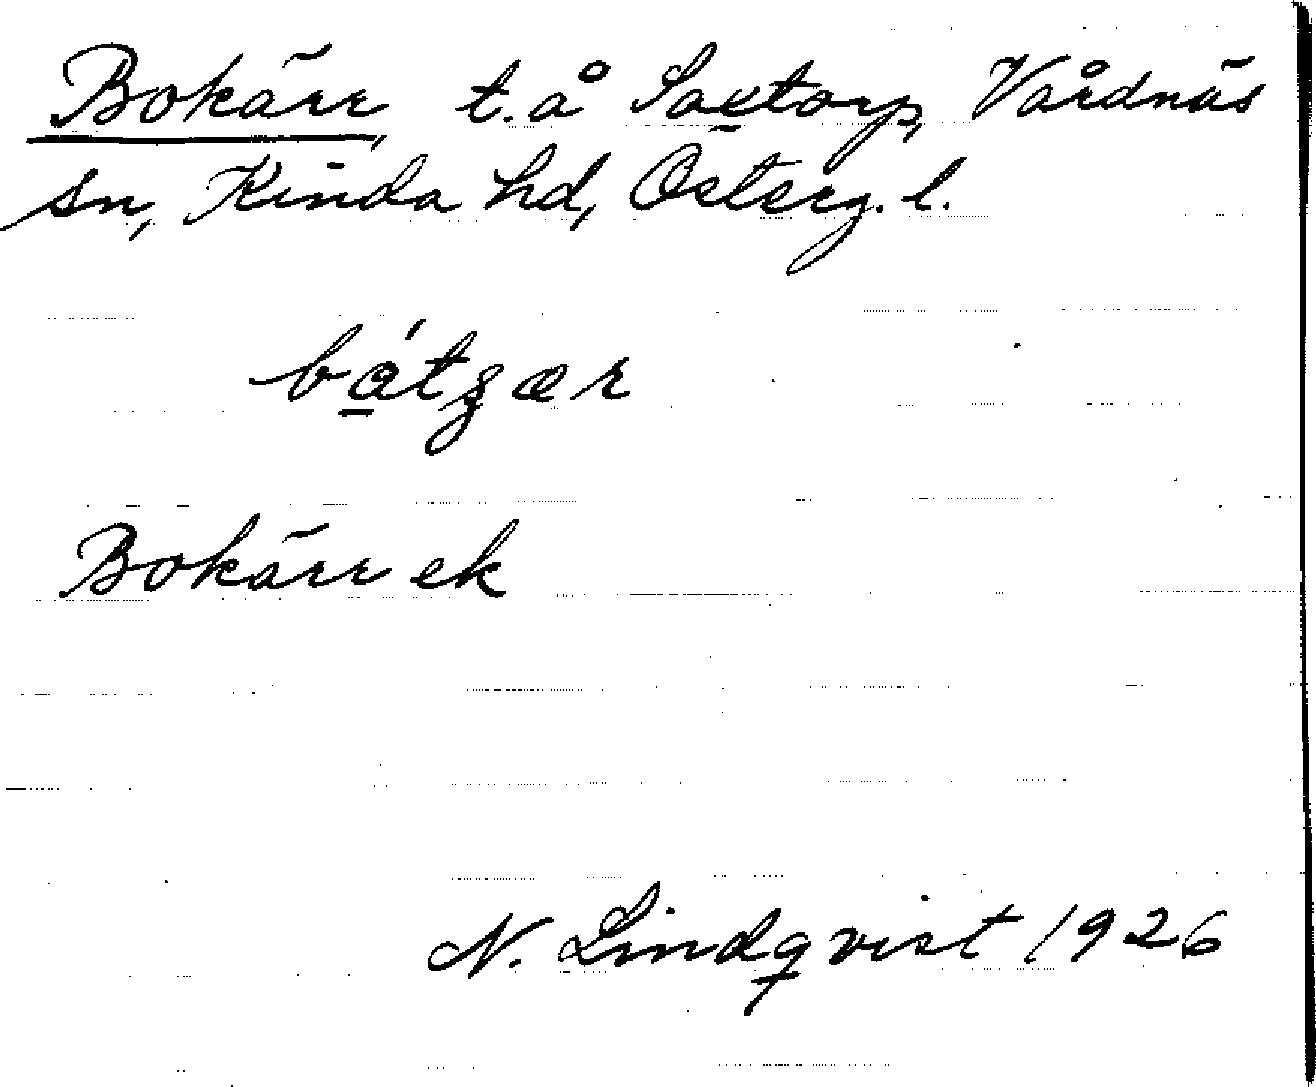 Bokärr, t. å Saxtorp, Vårdnäs
sn, Kinda hd, Österg. l.
Bokärr ek
N. Lindqvist 1926